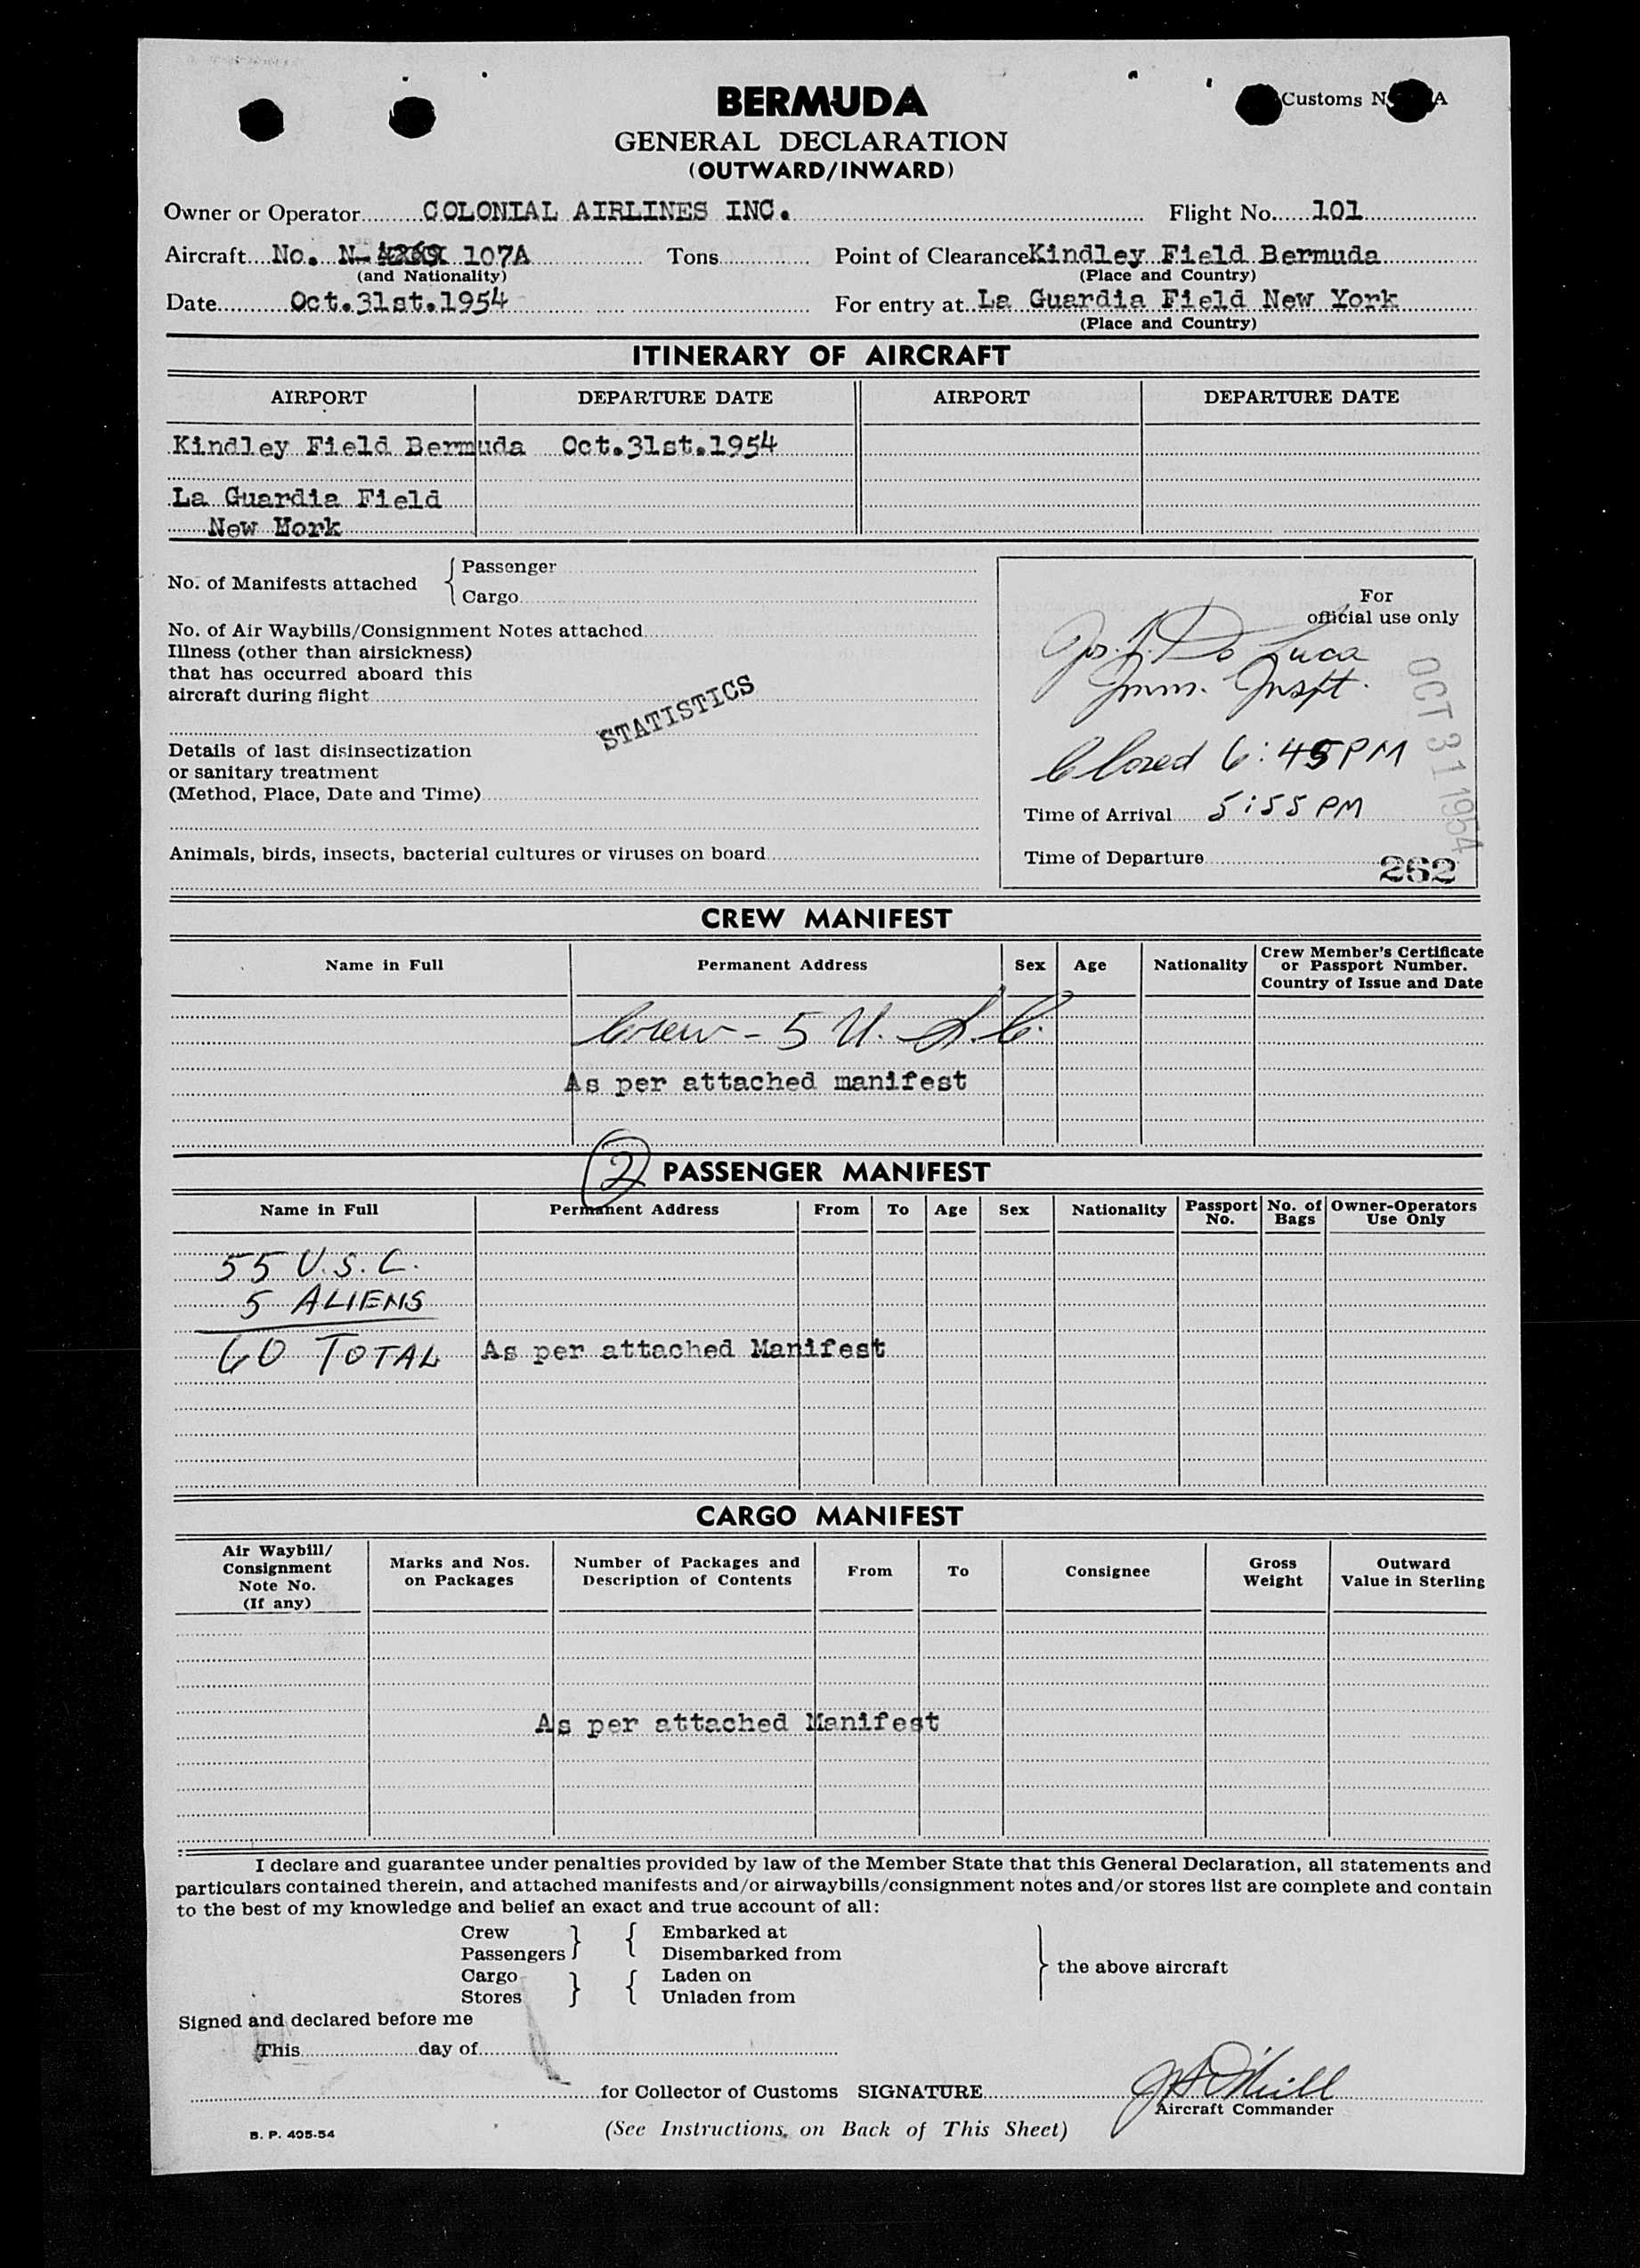 BERMUDA
Customs N A
GENERAL DECLARATION
(OUTWARD/INWARD)
Owner or Operator COLONIAL AIRLINES INC. Flight No. 101
Aircraft No. N- 107A Tons Point of Clearance Kindley Field Bermuda
(and Nationality) (Place and Country)
Date Oct.31st.1954 For entry at La Guardia Field New York
(Place and Country)
ITINERARY OF AIRCRAFT
AIRPORT DEPARTURE DATE AIRPORT DEPARTURE DATE
Kindley Field Bermuda Oct.31st.1954
La Guardia Field
New York
No. of Manifests attached { Passenger
Cargo
No. of Air Waybills/Consignment Notes attached
Illness (other than airsickness)
that has occurred aboard this
aircraft during flight
STATISTICS
Details of last disinsectization
or sanitary treatment
(Method, Place, Date and Time)
Animals, birds, insects, bacterial cultures or viruses on board
For
official use only
Jos. J. De Luca
Imm. Inspt.
OCT 31 1954
Closed 6:45 PM
Time of Arrival 5:55 PM
Time of Departure
262
CREW MANIFEST
Name in Full Permanent Address Sex Age Nationality Crew Member's Certificate
or Passport Number.
Country of Issue and Date
Crew - 5 U.S.C.
As per attached manifest
2 PASSENGER MANIFEST
Name in Full Permanent Address From To Age Sex Nationality Passport No. No. of Bags Owner-Operators Use Only
55 U.S.C.
5 ALIENS
60 TOTAL As per attached Manifest
CARGO MANIFEST
Air Waybill/
Consignment
Note No.
(If any)
Marks and Nos.
on Packages
Number of Packages and
Description of Contents
From To Consignee
Gross
Weight
Outward
Value in Sterling
As per attached Manifest
I declare and guarantee under penalties provided by law of the Member State that this General Declaration, all statements and
particulars contained therein, and attached manifests and/or airwaybills/consignment notes and/or stores list are complete and contain
to the best of my knowledge and belief an exact and true account of all:
Crew } { Embarked at
Passengers Disembarked from
Cargo } { Laden on
Stores Unladen from
} the above aircraft
Signed and declared before me
This day of
for Collector of Customs SIGNATURE
Aircraft Commander
(See Instructions, on Back of This Sheet)
B. P. 495-54